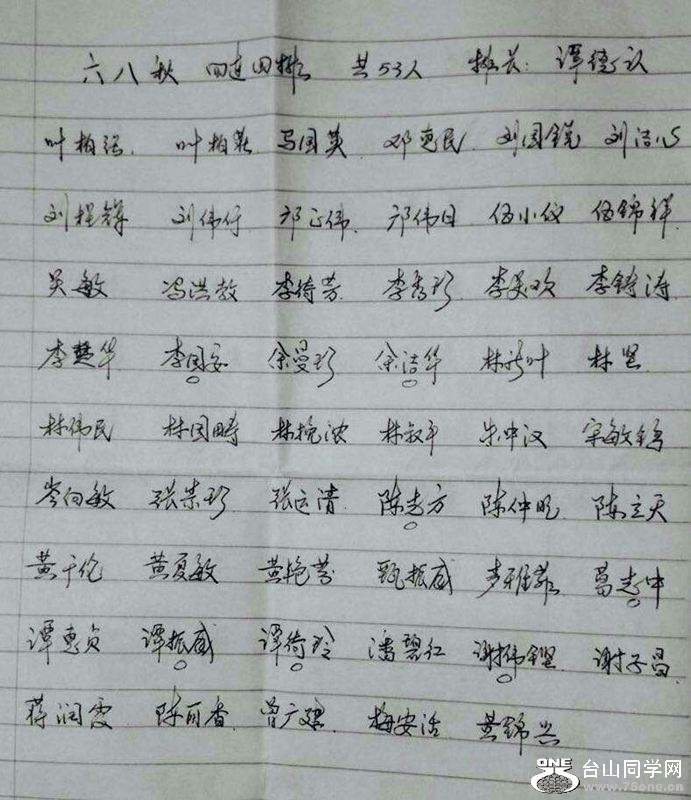 六八秋 四连四排 共53人 排长: 谭德认
叶柏强 叶柏燕 马国英 邓惠民 刘国锐 刘洁心
刘程锋 刘伟行 邝正伟 邝伟日 伍小仪 伍锦祥
吴敏 冯洪敬 李绮芳 李秀珍 李美欢 李铸涛
李楚华 李国安 余曼珍 余洁华 林新叶 林坚
林伟民 林国畴 林挽浓 林叙平 朱中汉 宋敏
岑向敏 张崇珍 张运清 陈志方 陈仲 陈立天
黄千伦 黄夏敏 黄艳芳 甄振威 麦雅 葛志中
谭惠贞 谭振威 谭绮玲 潘碧红 谢 谢子昌
蒋润霞 陈百香 曾广 梅安活 黄锦兴
ONE 台山同学网
www.75one.cn